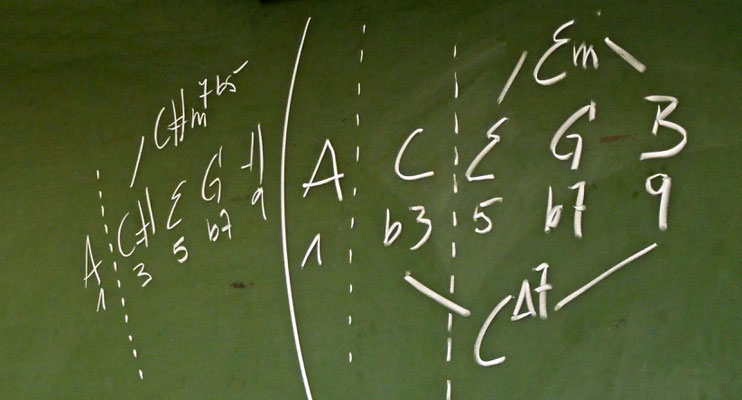 C#m7b5
A C# E G H
1 3 5 b7 9
Em
A C E G B
1 b3 5 b7 9
CΔ7